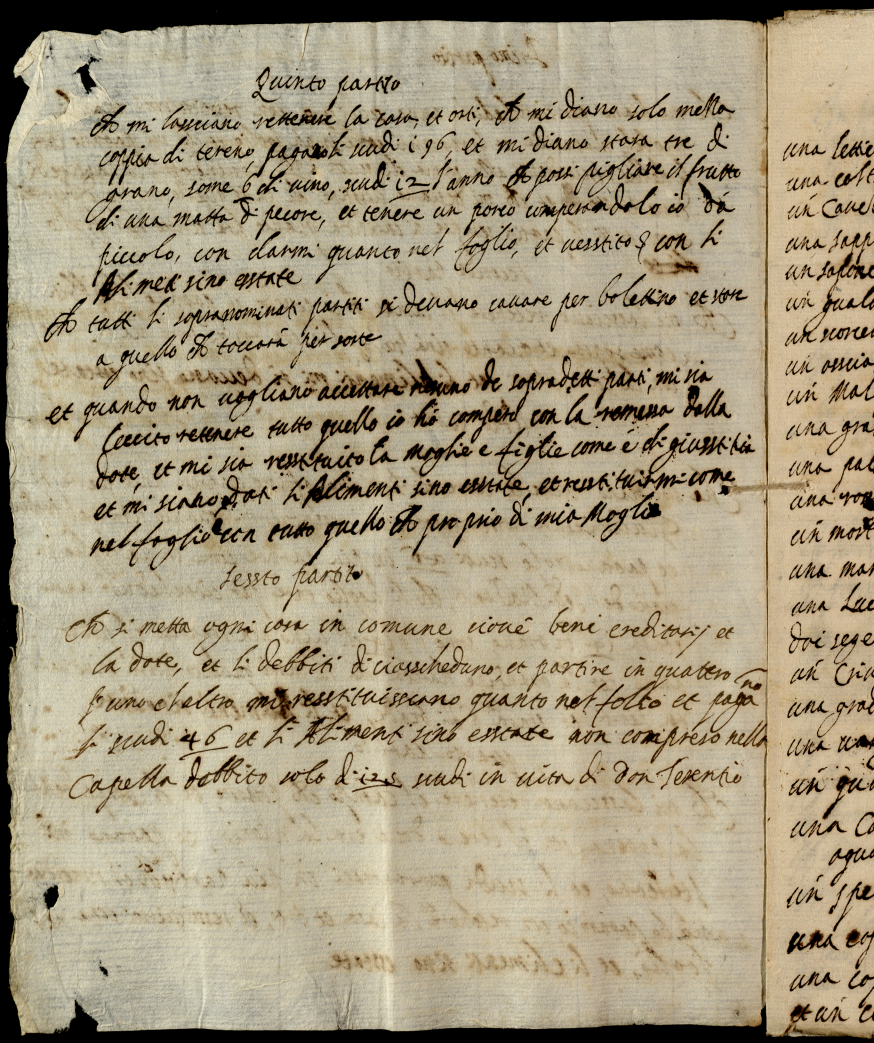 Quinto partito
Ch mi lassciano rettenere la casa, et orti, Ch mi diano solo mezza
coppia di tereno, pagaroli scudi 196, et mi diano stara tre di
grano, some 6 di vino, scudi 12 l'anno Ch possi pigliare il frutto
di una matta di pecore, et tenere un porco comperandolo io da
piccolo, con darmi quanto nel foglio, et vesstito con li
Alimeti sino esstate
Ch tutti li soprannominati partiti si devano cavare per bolettino et stare
a quello Ch toccarà per sorte
et quando non vogliano accettare neuno de sopradetti parti, mi sia
Leccito retenere tutto quello io hò compero con la remessa dalla
dote, et mi sia resstituito la moglie e figlie come è di giusstitia
et mi siano dati li Alimenti sino esstate, et resstituirmi come
nel foglio con tutto quello Ch proprio di mia Moglie
Sessto partito
Ch si metta ogni cosa in comune cioué beni ereditarij et
la dote, et li debbiti di ciasscheduno, et partire in quattro
p uno e l'altro mi resstituisscano quanto nel folio et pagano
li scudi 46 et li Alimenti sino esstate non compreso nella
Capella dobbito solo di 125 scudi in vita di Don Terentio
una
una
un
una
un
un
un
un
un
una
una
una
un
una
una
doi
un
una
una
un
una
un
una
una
et un